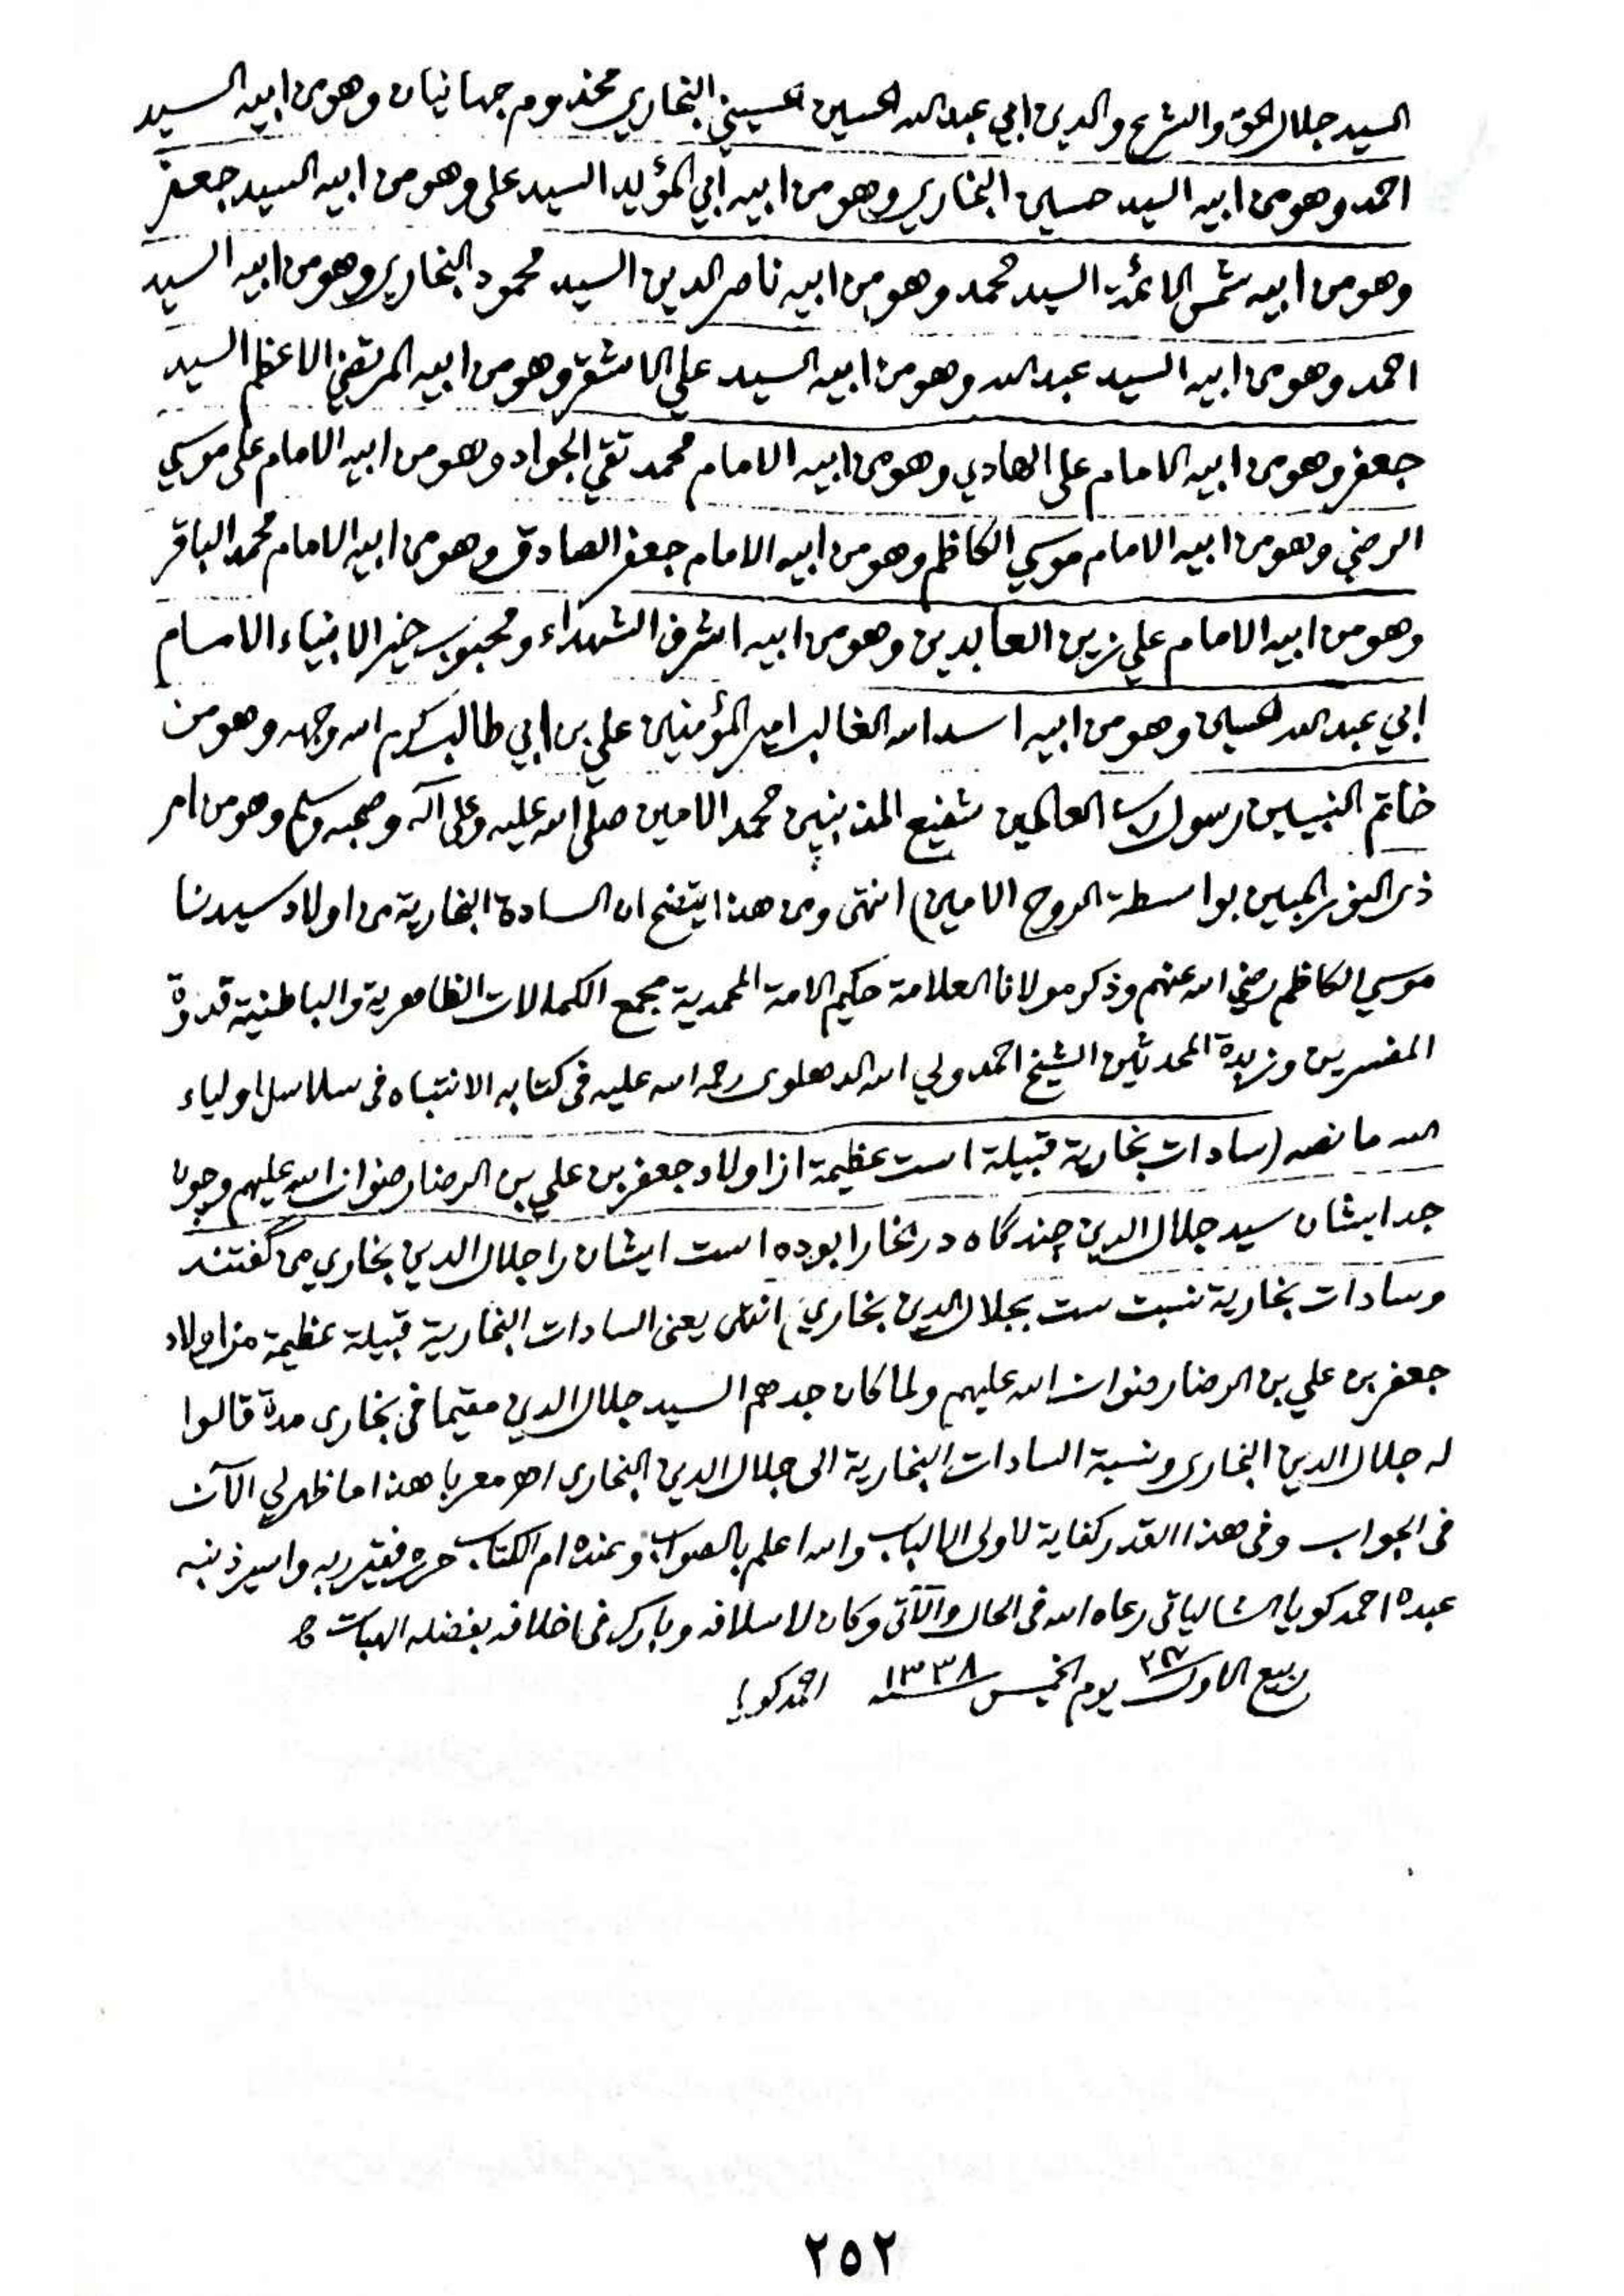 السيد جلال الحق والشرع والدين ابي عبدالله الحسين الحسيني البخاري مخذوم جهانيان وهو من ابيه السيد
احمد وهو من ابيه السيد حسين البخاري وهو من ابيه ابي المؤيد السيد على وهو من ابيه السيد جعفر
وهو من ابيه شمس الائمة السيد محمد وهو من ابيه ناصر الدين السيد محمود البخاري وهو من ابيه السيد
احمد وهو من ابيه السيد عبد الله وهو من ابيه السيد علي الاشقر وهو من ابيه المرتضي الاعظم السيد
جعفر وهو من ابيه الامام على الهادي وهو من ابيه الامام محمد تقي الجواد وهو من ابيه الامام على موسي
الرضي وهو من ابيه الامام موسي الكاظم وهو من ابيه الامام جعفر الصادق وهو من ابيه الامام محمد الباقر
وهو من ابيه الامام علي زين العابدين وهو من ابيه اشرف الشهداء ومحبوب خير الانبياء الامام
ابي عبد الله الحسين وهو من ابيه اسد الله الغالب امير المؤمنين علي بن ابي طالب كرم الله وجهه وهو من
خاتم النبيين رسول رب العالمين شفيع المذنبين محمد الامين صلى الله عليه وعلى آله وصحبه وسلم وهو من امر
ذى النور المبين بواسطة الروح الامين) انتهى ومن هذا يتضح ان السادة البخارية من اولاد سيدنا
موسي الكاظم رضي الله عنهم وذكر مولانا العلامة حكيم الامة المحمدية مجمع الكمالات الظاهرية والباطنية قدوة
المفسرين وزبدة المحدثين الشيخ احمد ولي الله الدهلوى رحمه الله عليه فى كتابه الانتباه فى سلاسل اولياء
الله ما نصه (سادات بخارية قبيلة است عظيمة از اولاد جعفر بن علي بن الرضا رضوان الله عليهم وچون
جد ايشان سيد جلال الدين چند گاه در بخارا بوده است ايشان را جلال الدين بخاري مى گفتند
وسادات بخارية نسبت ست بجلال الدين بخاري) انتهى يعنى السادات البخارية قبيلة عظيمة من اولاد
جعفر بن علي بن الرضا رضوان الله عليهم ولما كان جدهم السيد جلال الدين مقيما فى بخارى مدة قالوا
له جلال الدين البخارى ونسبة السادات البخارية الى جلال الدين البخارى اهـ معربا هذا ما ظهر لي الآن
فى الجواب وفى هذا القدر كفاية لاولى الالباب والله اعلم بالصواب وعنده ام الكتاب حرره فقير ربه واسير ذنبه
عبده احمد كويا الشالياتى رعاه الله فى الحال والآتى وكان لاسلافه وبارك فى اخلافه بفضله الهبات
ربيع الاول يوم الخميس سنه ١٣٣٨ احمد كويا
٢٥٢